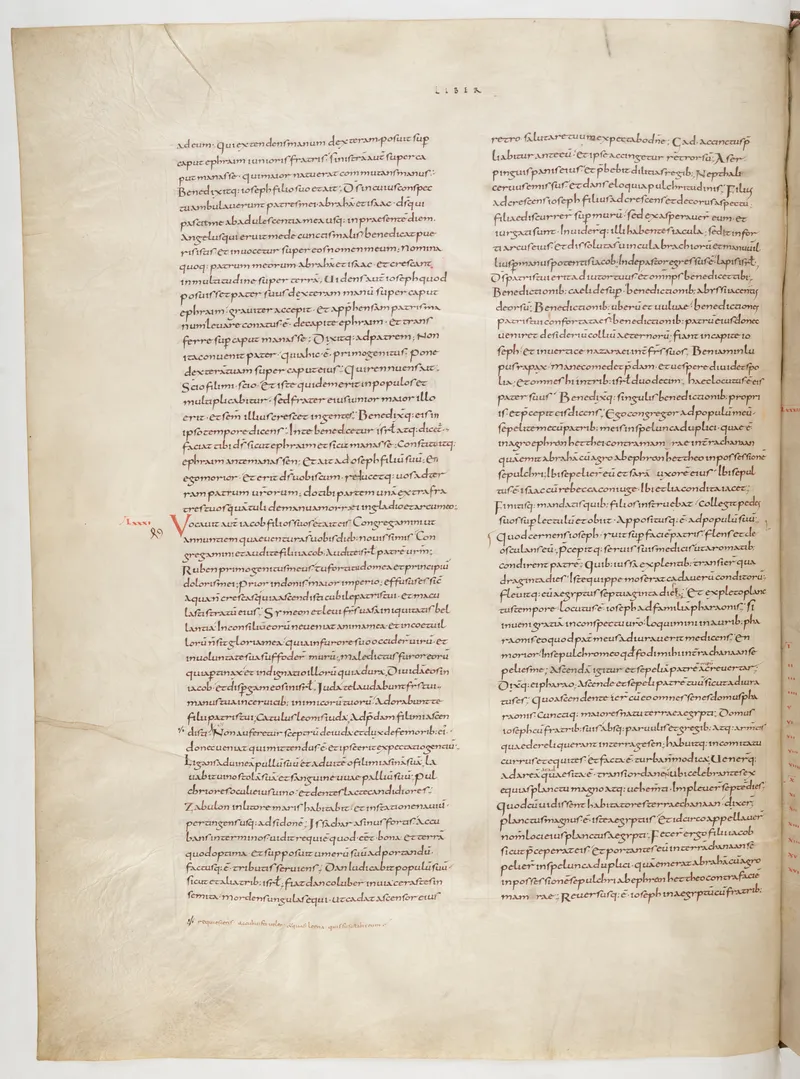 LIBER
ad eum; Qui extendens manum dexteram posuit sup
caput ephraim iunioris fratris; sinistrā aut̄ super ca
put manasse qui maior natu erat commutans manus;
Benedixitq; ioseph filio suo et ait; Ds in cuius conspec
tu ambulauerunt patres mei abrahā et isaac; ds qui
pascit me ab adulescentia mea usq; in praesentē diem.
Angelus qui eruit me de cunctis malis benedicat pue
ris istis et inuocetur super eos nomen meum; nomina
quoq; patrum meorum abrahā et isaac. et crescant
in multitudine super terrā; Uidens aut̄ ioseph quod
posuisset pater suus dexteram manū super caput
ephraim grauiter accepit. Et apphensam patris ma
num leuare conatus ē. de capite ephraim. et trans
ferre sup caput manasse; Dixitq; ad patrem; Non
ita conuenit pater. quia hic ē. primogenitus; pone
dexterā tuam super caput eius; Qui rennuens ait;
Scio fili mi scio. Et iste quidem erit in populos et
multiplicabitur; sed frater eius iunior maior illo
erit. et semen illius crescet in gentes; Benedixitq; eis in
ipso tempore dicens; In te benedicetur isrl atq; dicet;
faciat tibi ds sicut ephraim et sicut manasse; Constituitq;
ephraim ante manassen; Et ait ad ioseph filiū suū; En
ego morior. et erit ds uobiscum. reducetq; uos ad ter
ram patrum uestrorum; do tibi partem unā extra fra
tres tuos quā tuli de manu amorrei in gladio et arcu meo;
LXXXI
Vocauit aut̄ iacob filios suos et ait eis; Congregamini ut
annuntiem quae uentura sunt uobis diebus nouissimis; Con
gregamini et audite filii iacob. Audite isrl patrē urm;
Ruben primogenitus meus tu fortitudo mea et principiū
doloris mei; Prior in donis maior imperio; effusus es sic
aqua non crescas quia ascendisti cubile patris tui. et macu
lasti stratū eius. Symeon et leui frs uasa iniquitatis bel
lantia; In consiliū eorū ne ueniat anima mea et in coetu il
lorū n̄ sit gloria mea. quia in furore suo occiderunt uirū. et
in uoluntate sua suffoder̄ murū; maledictus furor eorū
quia pertinax et indignatio illorū quia dura; Diuidā eos in
iacob et dispgam eos in isrl; Juda te laudabunt frs tui.
manus tua in ceruicib; inimicorū tuorū. Adorabunt te
filii patris tui; Catulus leonis iuda; Ad pdam fili mi ascen
disti; Non auferetur sceptrū de iuda et dux de femorib; ei
donec ueniat qui mittendus ē. et ipse erit expectatio gentiū.
Ligans ad uineā pullū suū et ad uitē o fili mi asinā suā. La
uabit uino stolā suā et sanguine uuae palliū suū; pul
chriores oculi eius uino. et dentes lacte candidiores;
Zabulon in litore maris habitabit. et in statione nauiū
pertingens usq; ad sidonē; Issachar asinus fortis. Accu
bans int̄ terminos uidit requiē quod eēt bona. et terrā
quod optima. et supposuit umerū suū ad portandū.
factusq; ē. tributis seruiens; Dan iudicabit populū suū
sicut et alia trib; isrl; fiat dan coluber in uia cerastes in
semita. mordens ungulas equi. ut cadat ascensor eius
retro salutare tuum expectabo dn̄e; Gad. accinctus p̄
liabitur ante eū. et ipse accingetur retrorsū. Aser.
pinguis panis eius. et p̄bebit dilicias regib; Nepthali
ceruus emissus. et dans eloquia pulchritudinis; Filius
adcrescens ioseph filius adcrescens et decorus aspectu
filiae discurrer sup murū. sed exasperauer eum. et
iurgati sunt. Inuiderq; illi habentes iacula; sedit in for
ti arcus eius. et dissoluta s̄ uincula brachiorū et manuū il
lius p manus potentis iacob. Inde pastor egressus ē. lapis isrl.
Ds patris tui erit adiutor tuus et omnips benedicet tibi.
Benedictionib; caeli desup. benedictionib; abyssi iacentis
deorsū; Benedictionib; uberū et uuluae. benedictiones
patris tui confortatae s̄ benedictionib; patrū eius. donec
ueniret desideriū colliū aeternorū; fiant in capite io
seph. et in uertice nazarei int̄ frs suos; Beniamin lu
pus rapax. mane comedet pdam. et uespere diuidet spo
lia. et omnes hi in trib; isrl duodecim; haec locutus ē eis
pater suus. Benedixitq; singulis benedictionib; propri
is et p̄cepit eis dicens; Ego congregor ad populū meū.
sepelite me cū patrib; meis in spelunca duplici quae ē
in agro ephron hethei contra mam rae in terra chanaan
quā emit abrahā cū agro ab ephron hetheo in possessionē
sepulchri; Ibi sepelier eū et sarā uxorē eius. Ibi sepul
tus ē isaac cū rebecca coniuge. Ibi et lia condita iacet;
Finitisq; mandatis quib; filios instruebat. collegit pedes
suos sup lectulū et obiit. Appositusq; ē ad populū suū.
Quod cernens ioseph ruit sup faciē patris flens et de
osculans eū; p̄cepitq; seruis suis medicis ut aromatib;
condirent patrē; Quib; iussa explentib; transier qua
draginta dies; Iste quippe mos erat cadauerū conditorū;
fleuitq; eū aegyptus septuaginta dieb;. Et expleto planc
tus tempore locutus ē ioseph ad familiā pharaonis. si
inueni gratiā in conspectu uro loquimini in aurib; pha
raonis eo quod pater meus adiurauerit me dicens. En
morior. In sepulchro meo qd fodi mihi in terra chanaan se
pelies me; Ascendā igitur et sepeliā patrē ac reuertar;
Dixitq; ei pharao; Ascende et sepeli patrē tuū sicut adiura
tus es; Quo ascendente ier cū eo omnes senes domus pha
raonis. Cunctiq; maiores natu terrae aegypti; Domus
ioseph cū frib; suis absq; paruulis et gregib; atq; armentis
quae dereliquerant in terra gesen; habuitq; in comitatu
currus et equites. et facta ē. turba n̄ modica; Uenerq;
ad areā quae sita ē. trans iordanē; ubi celebrantes ex
equias planctu magno atq; uehementi. Impleuer septē dies;
Quod cū uidissent habitatores terrae chanaan dixer;
planctus magnus ē. iste aegyptiis. Et idcirco appellauer
nom̄ loci eius planctus aegypti; Fecer ergo filii iacob
sicut p̄ceperat eis. Et portantes eū in terrā chanaan se
pelier in spelunca duplici. quā emerat abrahā cū agro
in possessionē sepulchri ab ephron hetheo contra faciē
mam rae; Reuersusq; ē. ioseph in aegyptū cū fratrib;